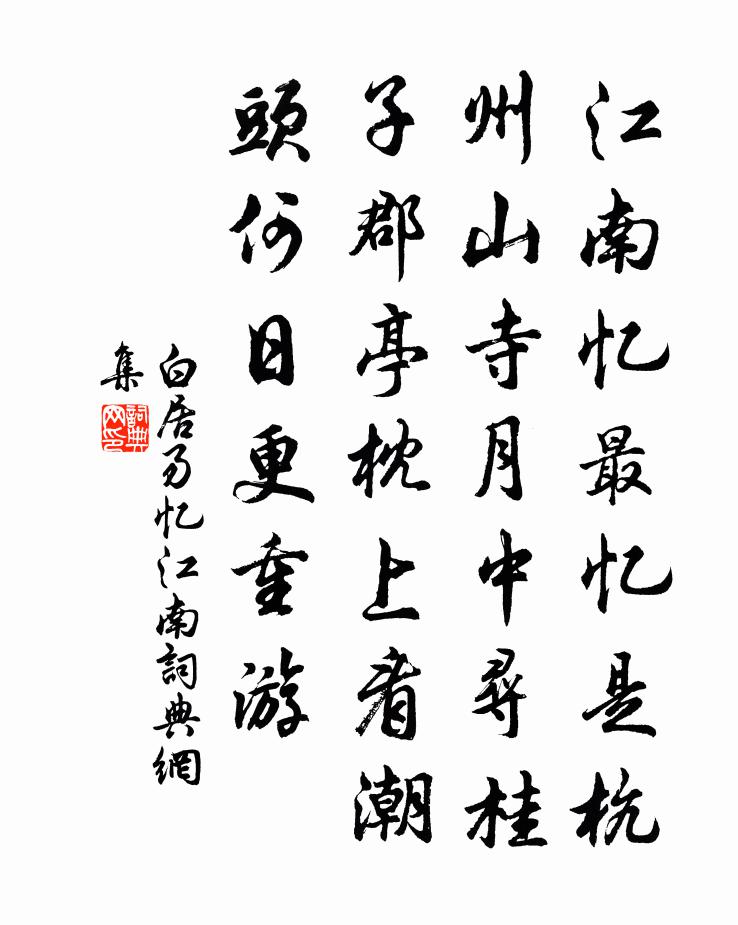 江南忆最忆是杭
州山寺月中尋桂
子郡亭枕上看潮
頭何日更重游
白居易忆江南詞典網
集
詞典网印